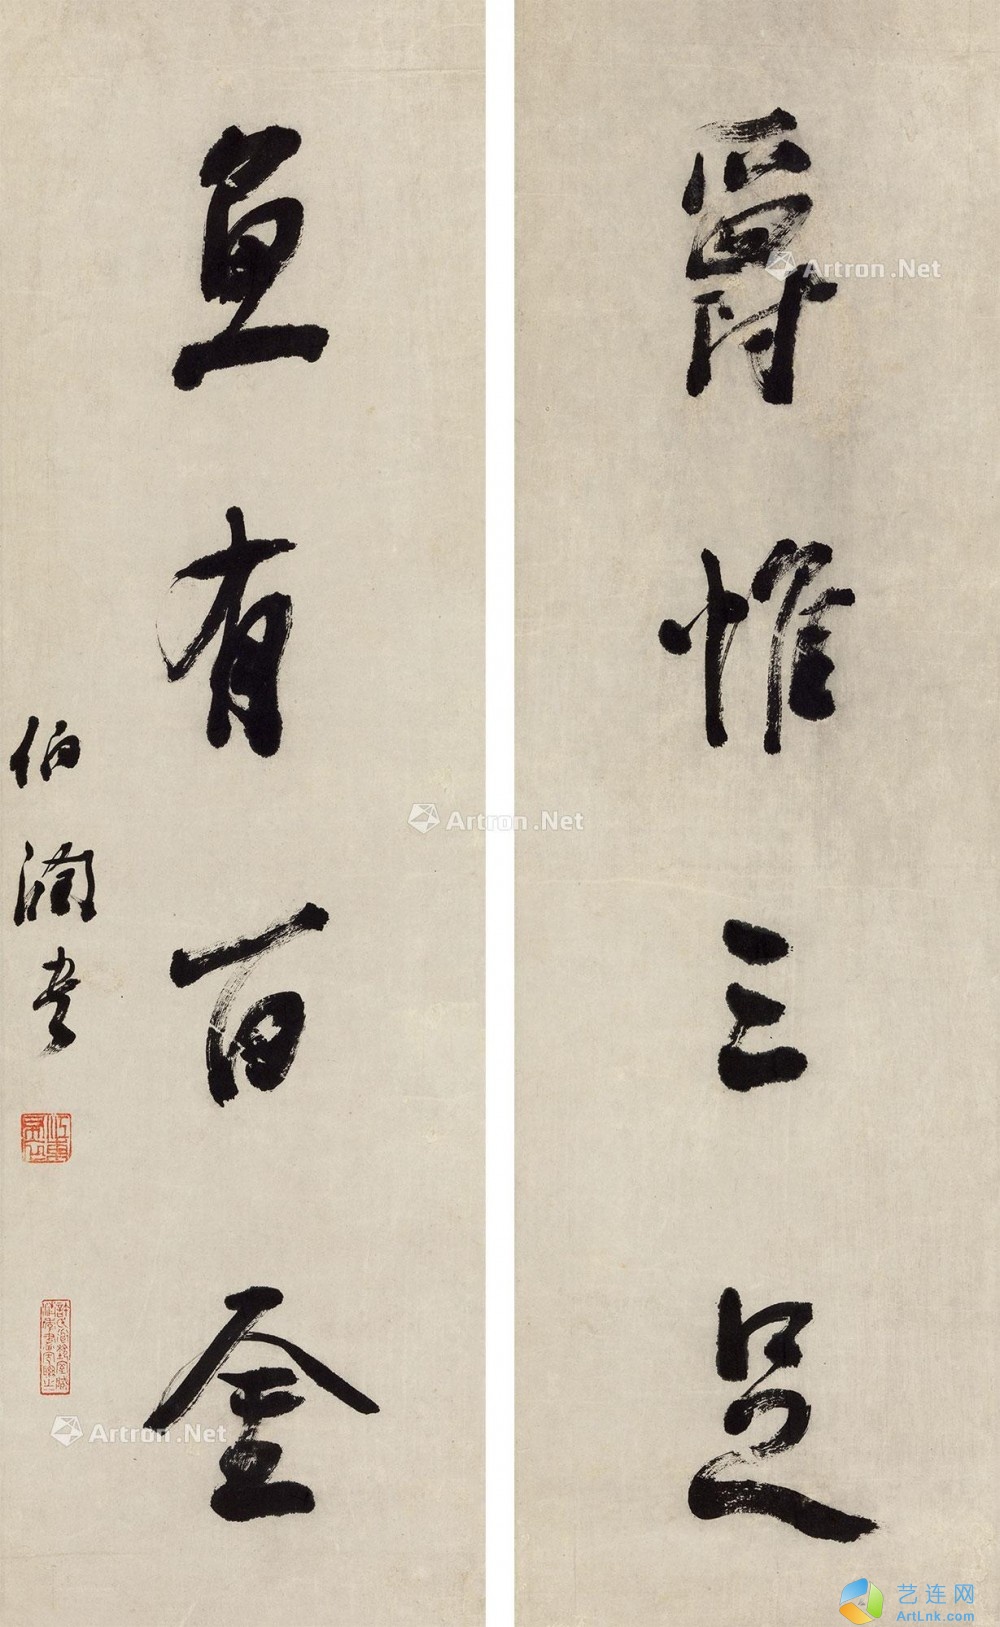 爵惟三足
魚有百金
伯 書
Artron.Net
Artron.Net
Artron.Net
艺连网
ArtLnk.com